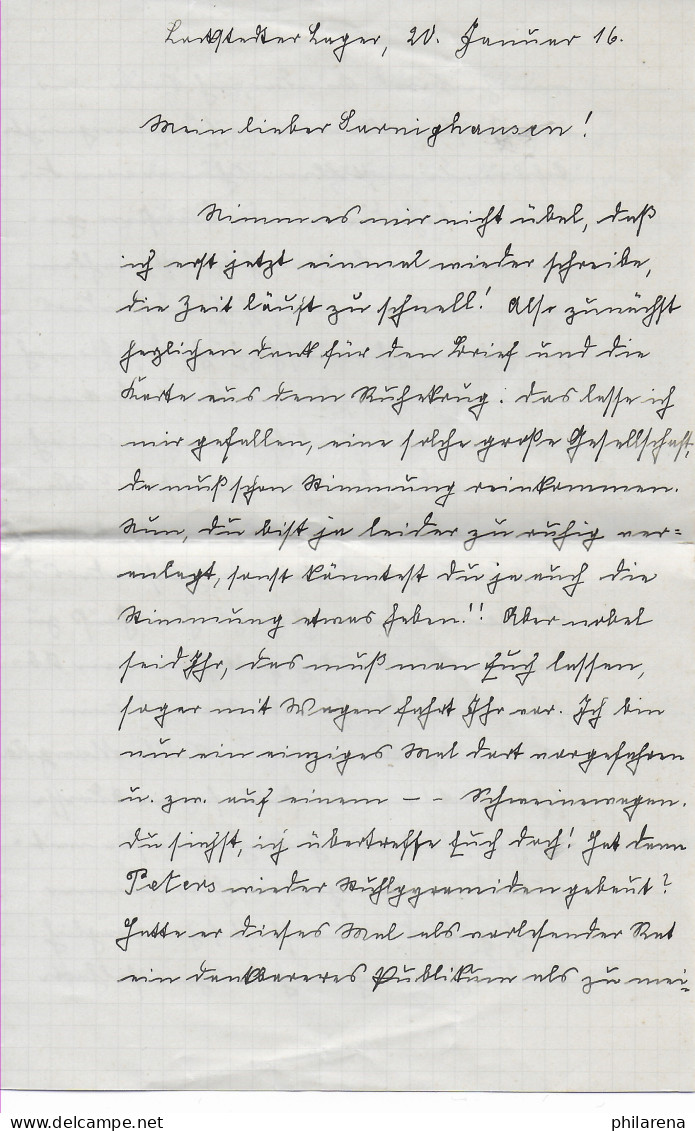 Lockstedter Lager, 20. Januar 16.
Mein lieber Sarnighausen!
Nimm es mir nicht übel, daß
ich erst jetzt einmal wieder schreibe,
die Zeit läuft zu schnell! Also zunächst
herzlichen Dank für den Brief und die
Karte aus dem Ruhekrug. Das lasse ich
mir gefallen, eine solche große Gesellschaft,
da muß schon Stimmung reinkommen.
Nun, du bist ja leider zu ruhig ver=
anlagt, sonst könntest Du ja auch die
Stimmung etwas heben!! Aber nobel
seid Ihr, das muß man Euch lassen,
sogar mit Wagen fahrt Ihr vor. Ich bin
nur ein einziges Mal dort vorgefahren
u. zw. auf einem – – Schweinewagen.
Du siehst, ich übertreffe Euch doch! Hat denn
Peters wieder Stuhlpyramiden gebaut?
Hatte er dieses Mal als vorlesender Rat
ein dankbareres Publikum als zu mei=
www.delcampe.net
philarena